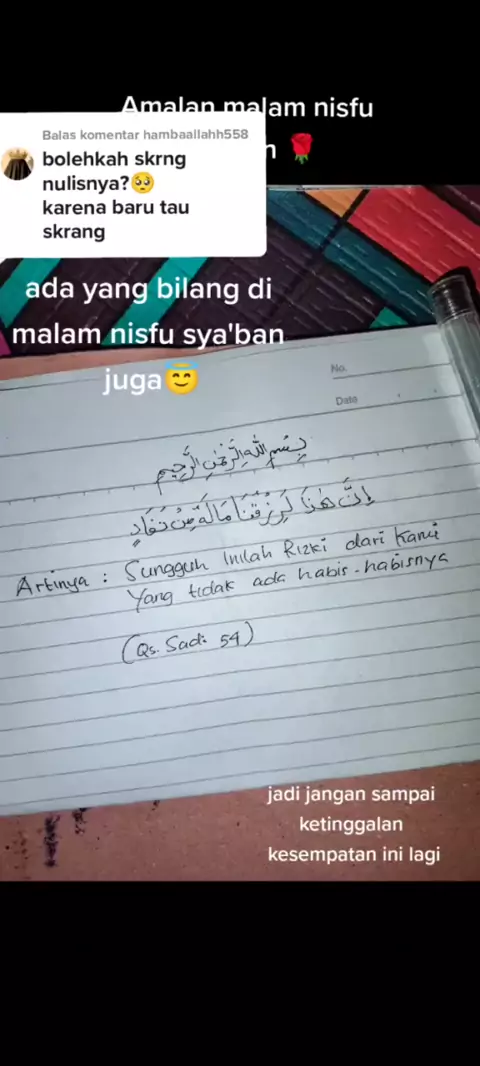 Amalan malam nisfu
h 🌹
Balas komentar hambaallahh558
bolehkah skrng
nulisnya?🥺
karena baru tau
skrang
ada yang bilang di
malam nisfu sya'ban
juga😇
No.
Date
بِسْمِ اللهِ الرَّحْمٰنِ الرَّحِيْمِ
اِنَّ هٰذَا لَرِزْقُنَا مَا لَهٗ مِنْ نَفَادٍ
Artinya : Sungguh Inilah Rizki dari Kami
Yang tidak ada habis-habisnya
(Qs. Sad: 54)
jadi jangan sampai
ketinggalan
kesempatan ini lagi